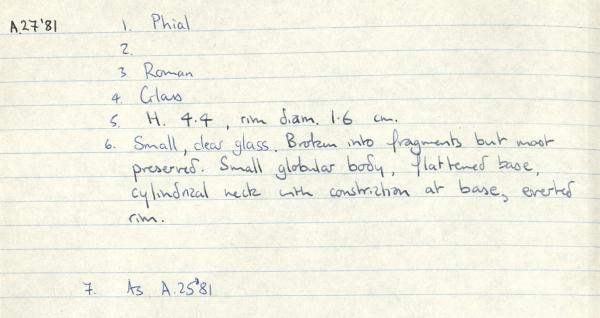 A.27'81
1. Phial
2.
3 Roman
4. Glass
5. H. 4.4, rim diam. 1.6 cm.
6. Small, clear glass. Broken into fragments but most
preserved. Small globular body, flattened base,
cylindrical neck with constriction at base, everted
rim.
7. As A.25'81